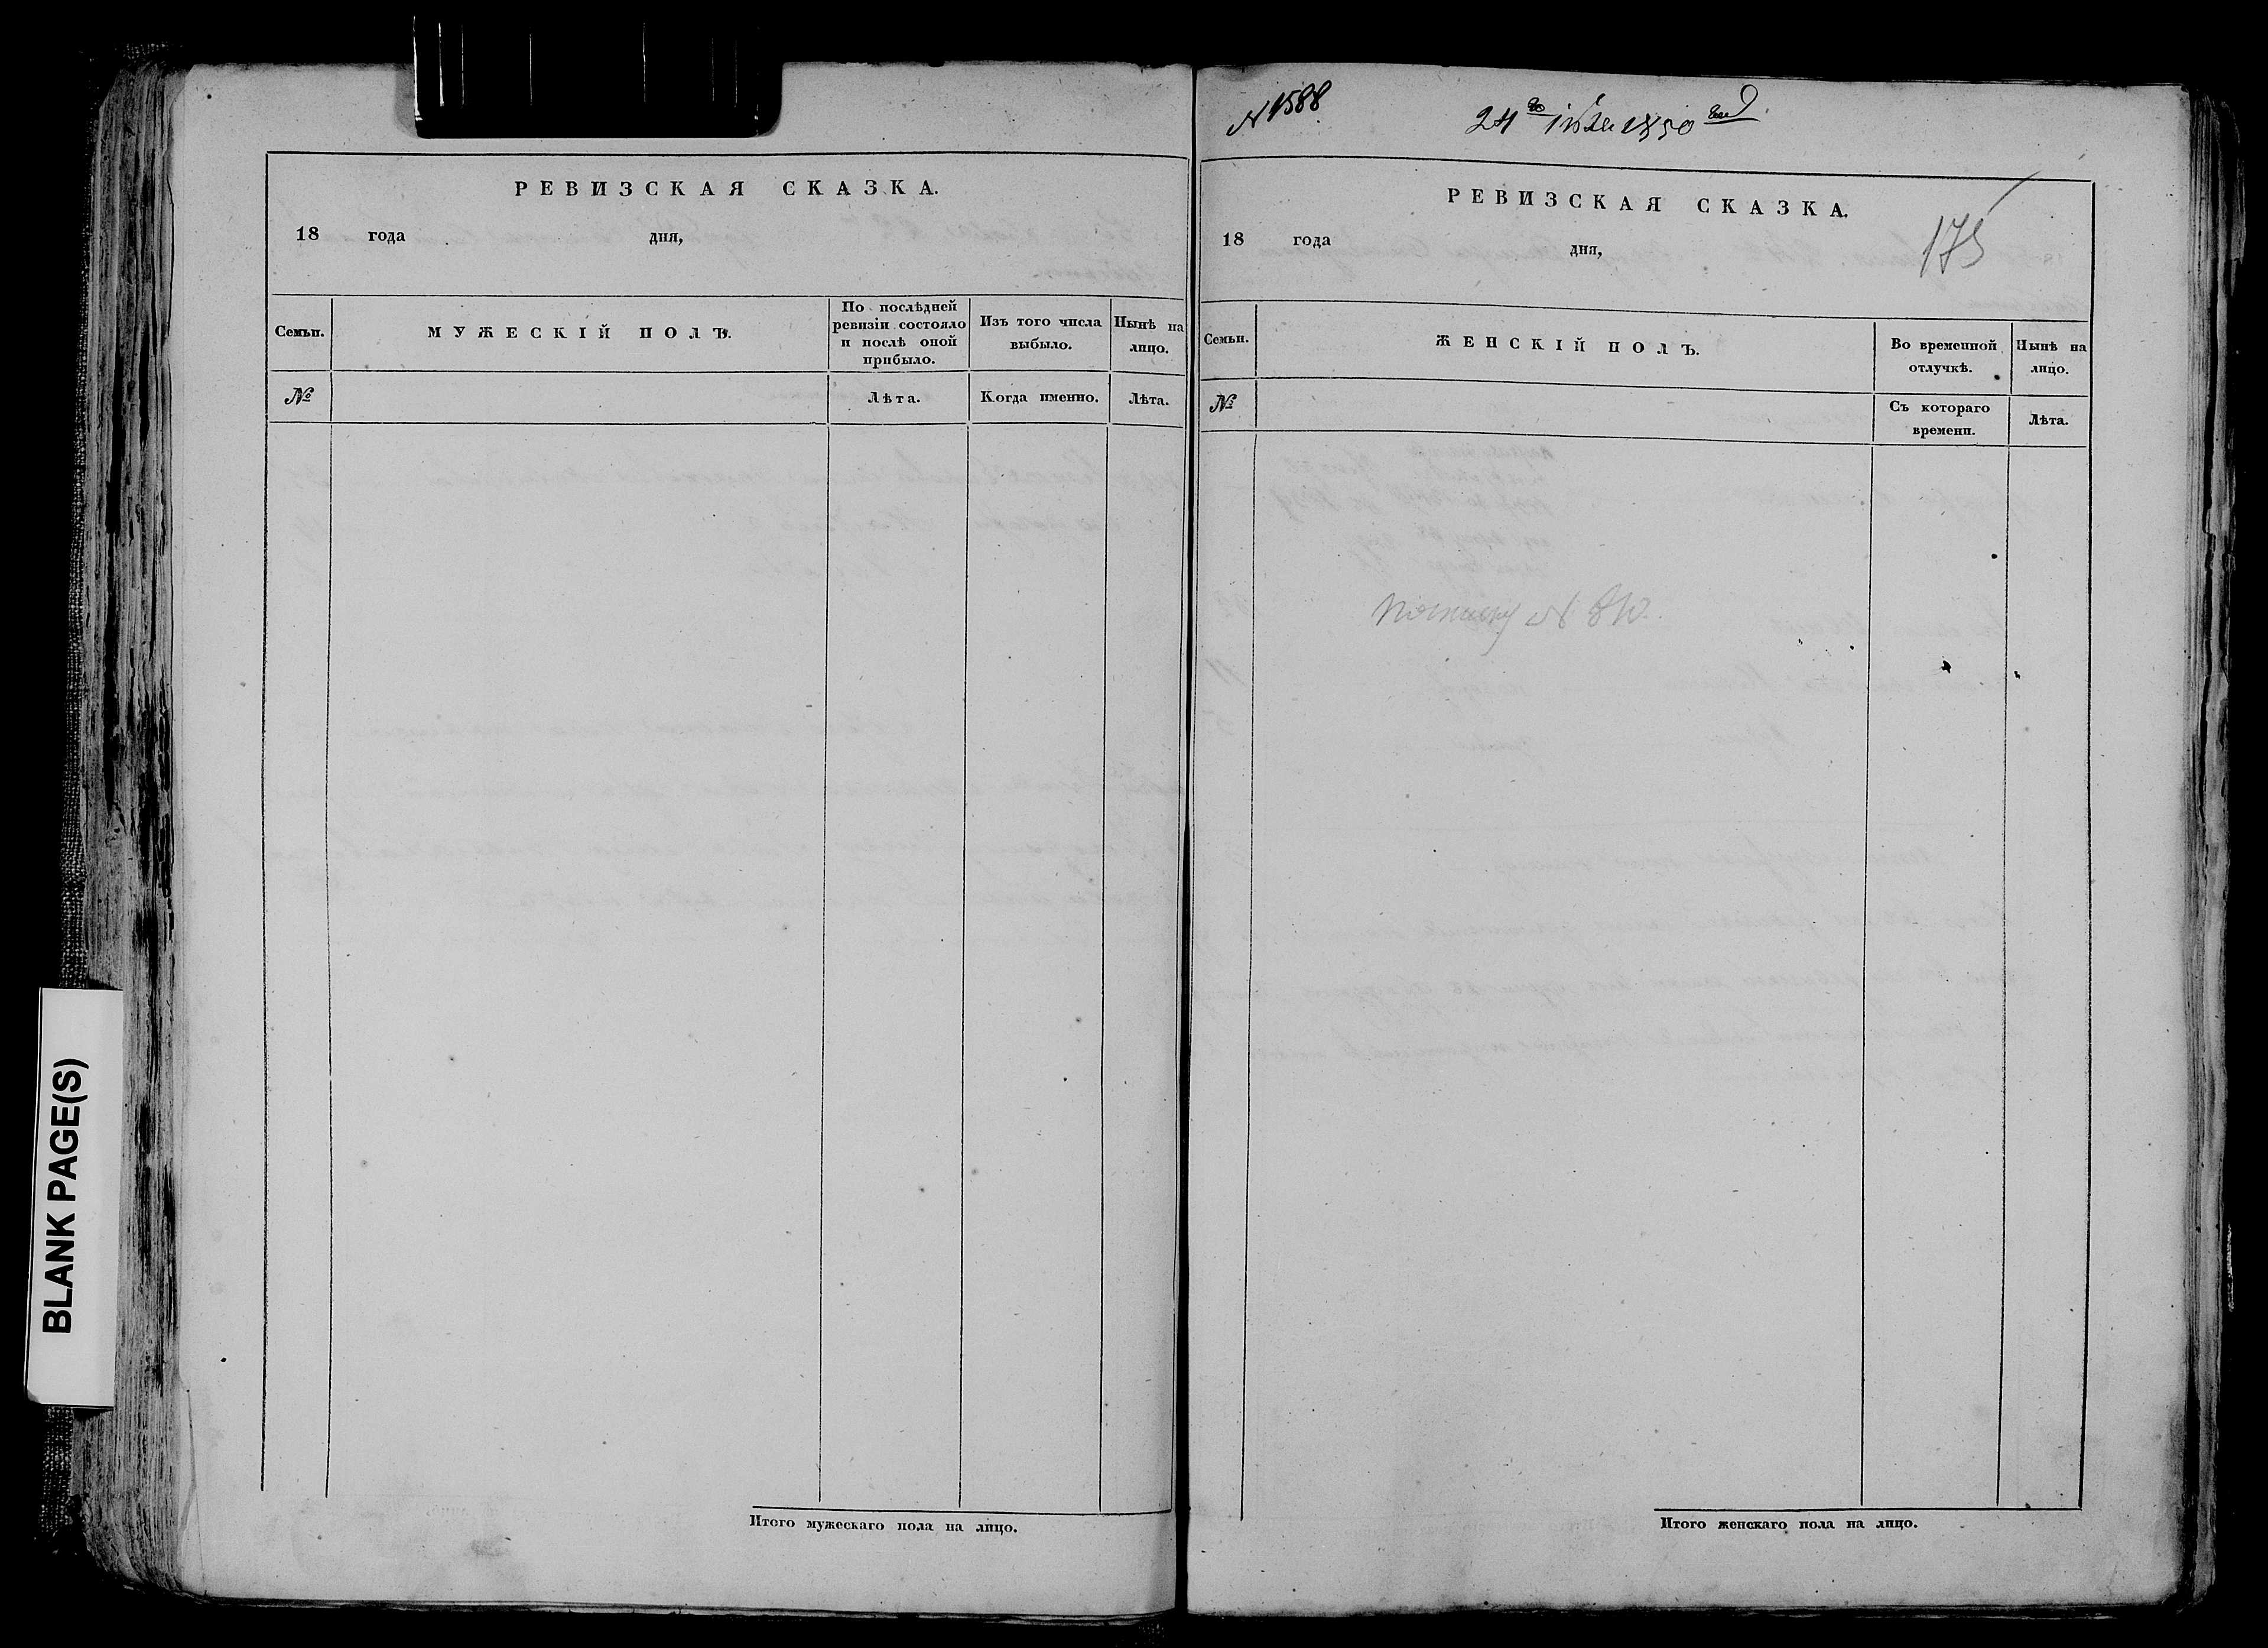 BLANK PAGE(S)
РЕВИЗСКАЯ СКАЗКА.
18 года дня,
Семьи.
МУЖЕСКІЙ ПОЛЪ.
По послѣдней
ревизіи состояло
и послѣ оной
прибыло.
Изъ того числа
выбыло.
Нынѣ на
лицо.
№
Лѣта.
Когда именно.
Лѣта.
Итого мужескаго пола на лицо.
N 1588
24го 1850
РЕВИЗСКАЯ СКАЗКА.
18 года дня,
175
Семьи.
ЖЕНСКІЙ ПОЛЪ.
Во временной
отлучкѣ.
Нынѣ на
лицо.
№
Съ котораго
времени.
Лѣта.
Итого женскаго пола на лицо.